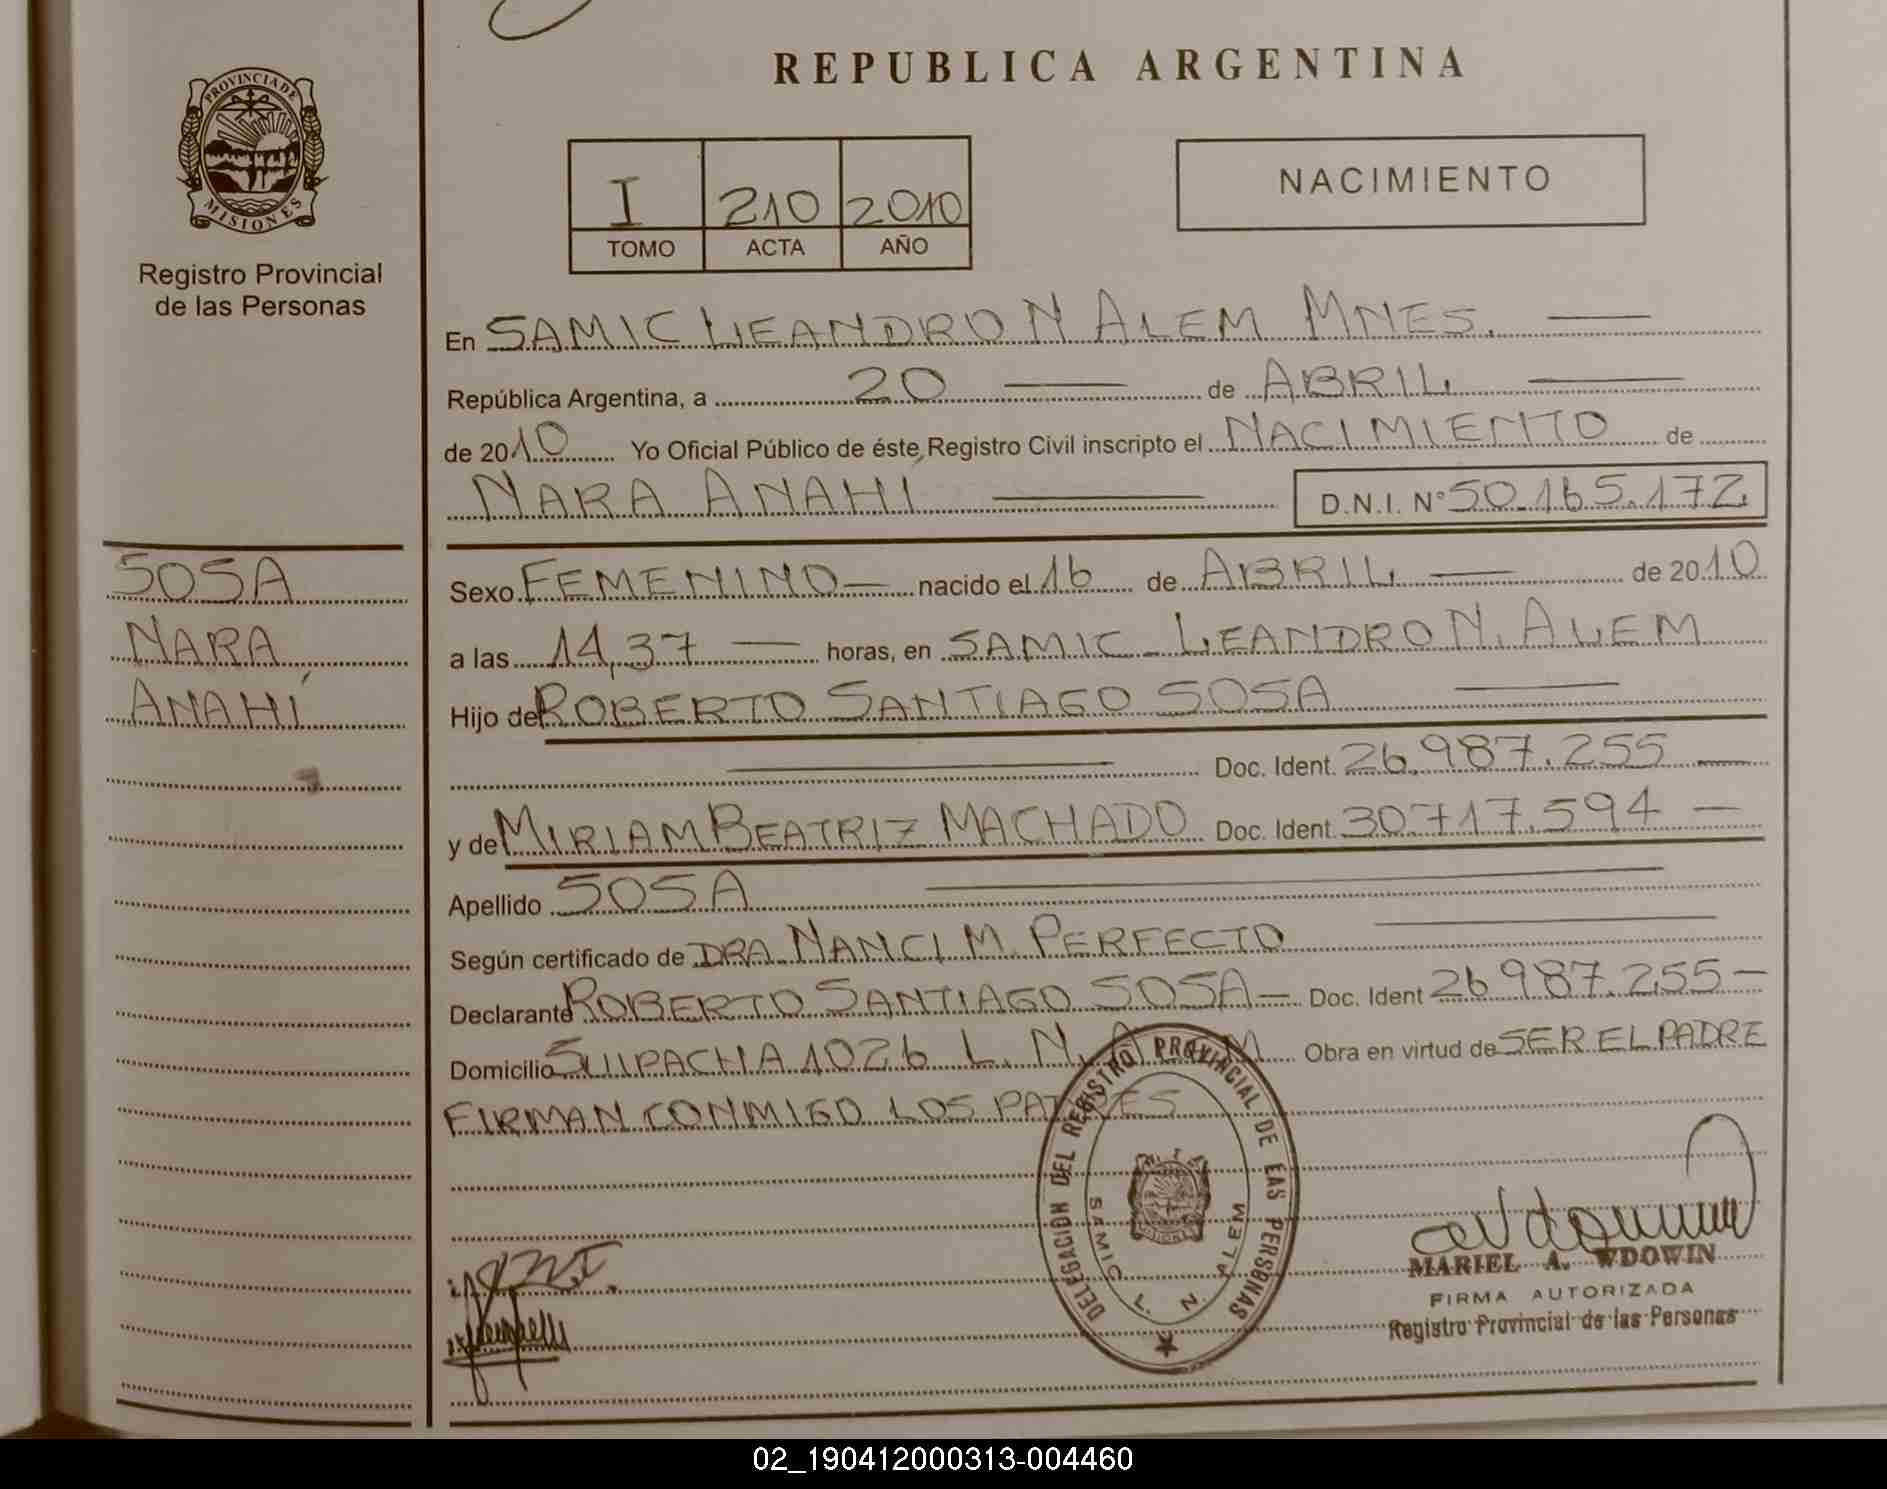 REPUBLICA ARGENTINA
PROVINCIA DE
MISIONES
Registro Provincial
de las Personas
I 210 2010
TOMO ACTA AÑO
NACIMIENTO
En SAMIC LEANDRO N ALEM MNES.
República Argentina, a 20 de ABRIL
de 2010 Yo Oficial Público de éste Registro Civil inscripto el NACIMIENTO de
NARA ANAHÍ D.N.I. N° 50.165.172
SOSA
NARA
ANAHÍ
Sexo FEMENINO nacido el 16 de ABRIL de 2010
a las 14,37 horas, en SAMIC - LEANDRO N. ALEM
Hijo de ROBERTO SANTIAGO SOSA
Doc. Ident. 26.987.255
y de MIRIAM BEATRIZ MACHADO Doc. Ident. 30.717.594
Apellido SOSA
Según certificado de DRA. NANCI M. PERFECTO
Declarante ROBERTO SANTIAGO SOSA Doc. Ident 26987.255
Domicilio SUIPACHA 1026 L. N. ALEM Obra en virtud de SER EL PADRE
FIRMAN CONMIGO LOS PADRES
DELEGACION DEL REGISTRO PROVINCIAL DE LAS PERSONAS
SAMIC L. N. ALEM
MARIEL A. WDOWIN
FIRMA AUTORIZADA
Registro Provincial de las Personas
02_190412000313-004460